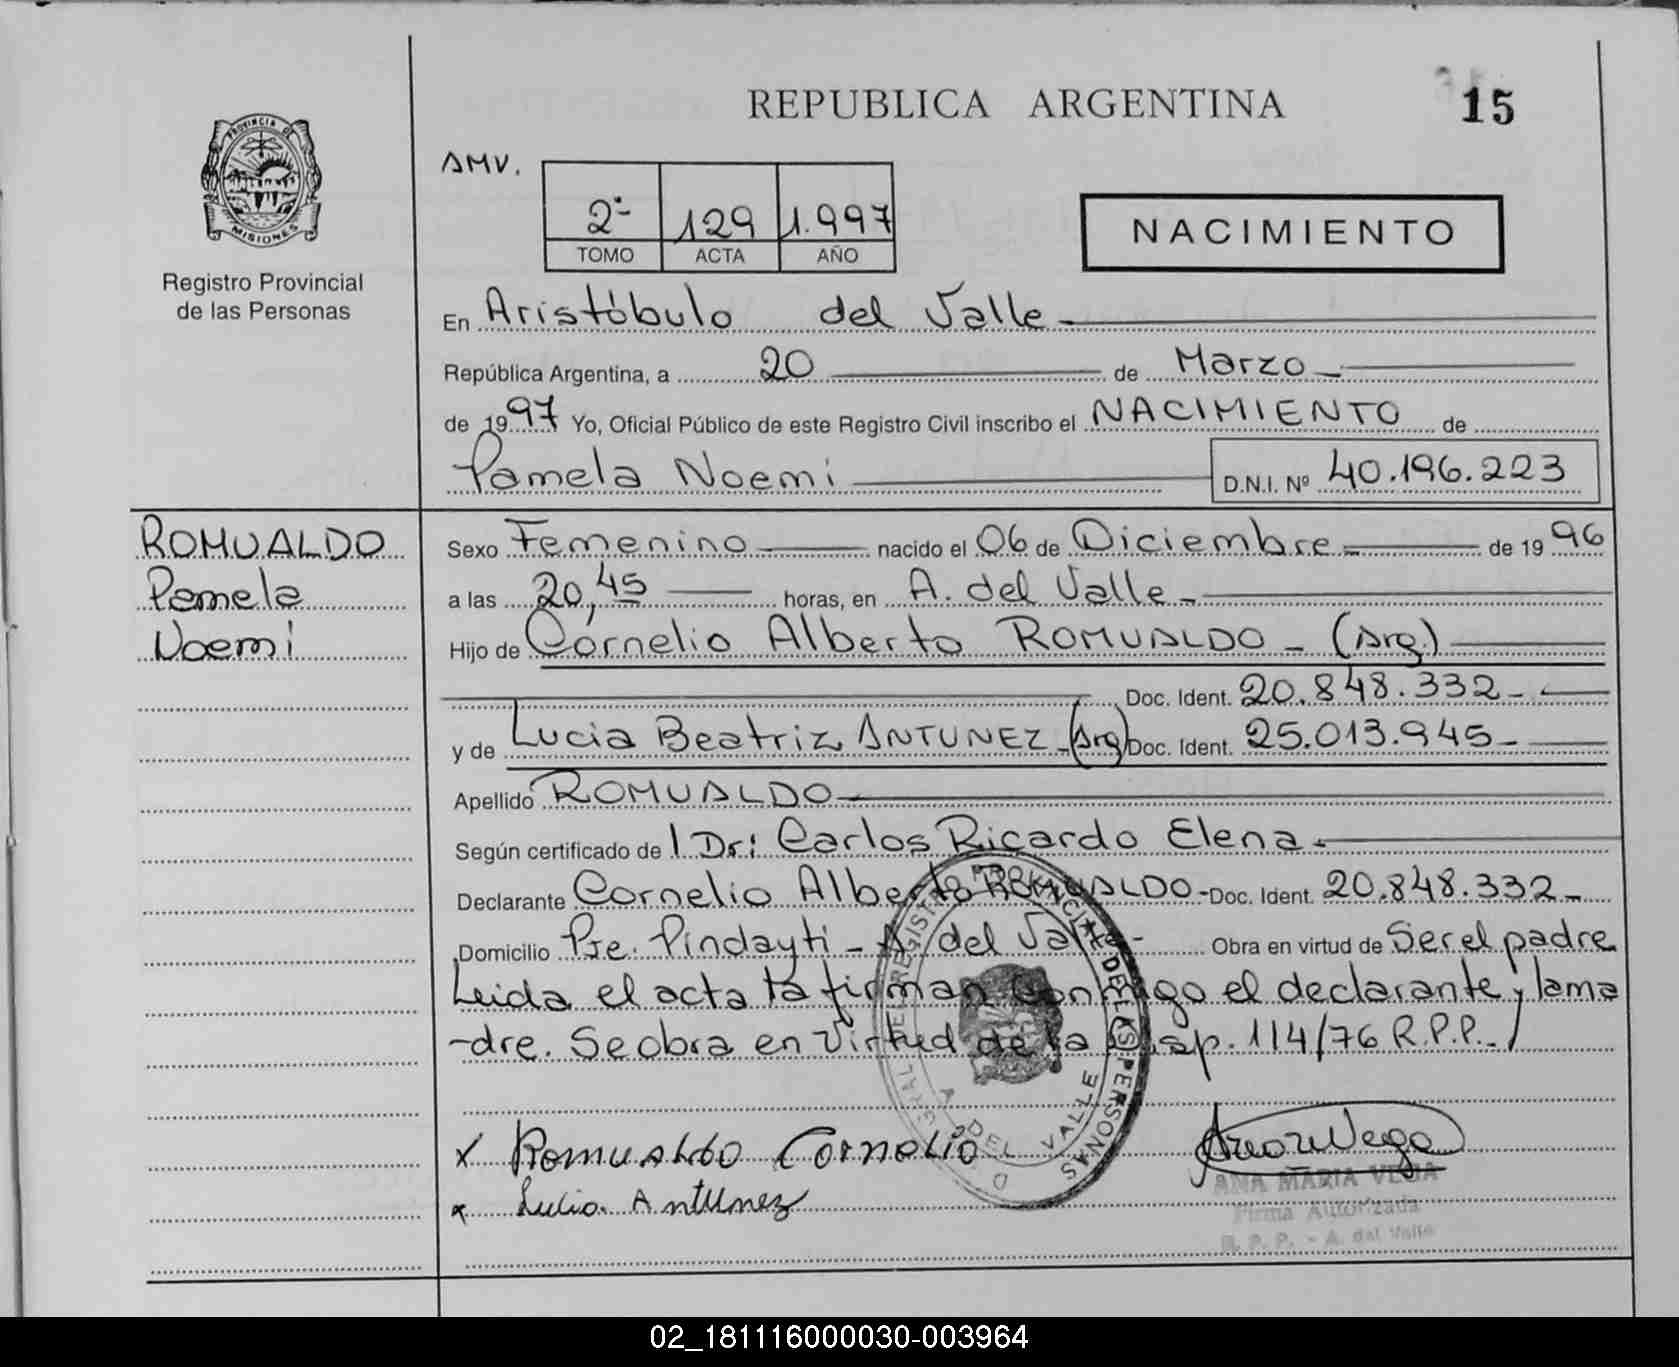 REPUBLICA ARGENTINA
15
PROVINCIA DE
MISIONES
Registro Provincial
de las Personas
AMV.
2º 129 1.997
TOMO ACTA AÑO
NACIMIENTO
En Aristóbulo del Valle
República Argentina, a 20 de Marzo
de 1997 Yo, Oficial Público de este Registro Civil inscribo el NACIMIENTO de
Pamela Noemi D.N.I. Nº 40.196.223
ROMUALDO
Pamela
Noemi
Sexo Femenino nacido el 06 de Diciembre de 1996
a las 20,45 horas, en A. del Valle
Hijo de Cornelio Alberto ROMUALDO - (Arg.)
Doc. Ident. 20.848.332
y de Lucia Beatriz ANTUNEZ (Arg) Doc. Ident. 25.013.945
Apellido ROMUALDO
Según certificado de Dr: Carlos Ricardo Elena
Declarante Cornelio Alberto ROMUALDO Doc. Ident. 20.848.332
Domicilio Pje. Pindayti - A. del Valle Obra en virtud de Ser el padre
Leida el acta la firman conmigo el declarante y la ma
-dre. Se obra en virtud de la Disp. 114/76 R.P.P.
X Romualdo Cornelio
x Lucia Antunez
A. DEL VALLE
ANA MARIA VEGA
Firma Autorizada
R. P. P. - A. del Valle
02_181116000030-003964